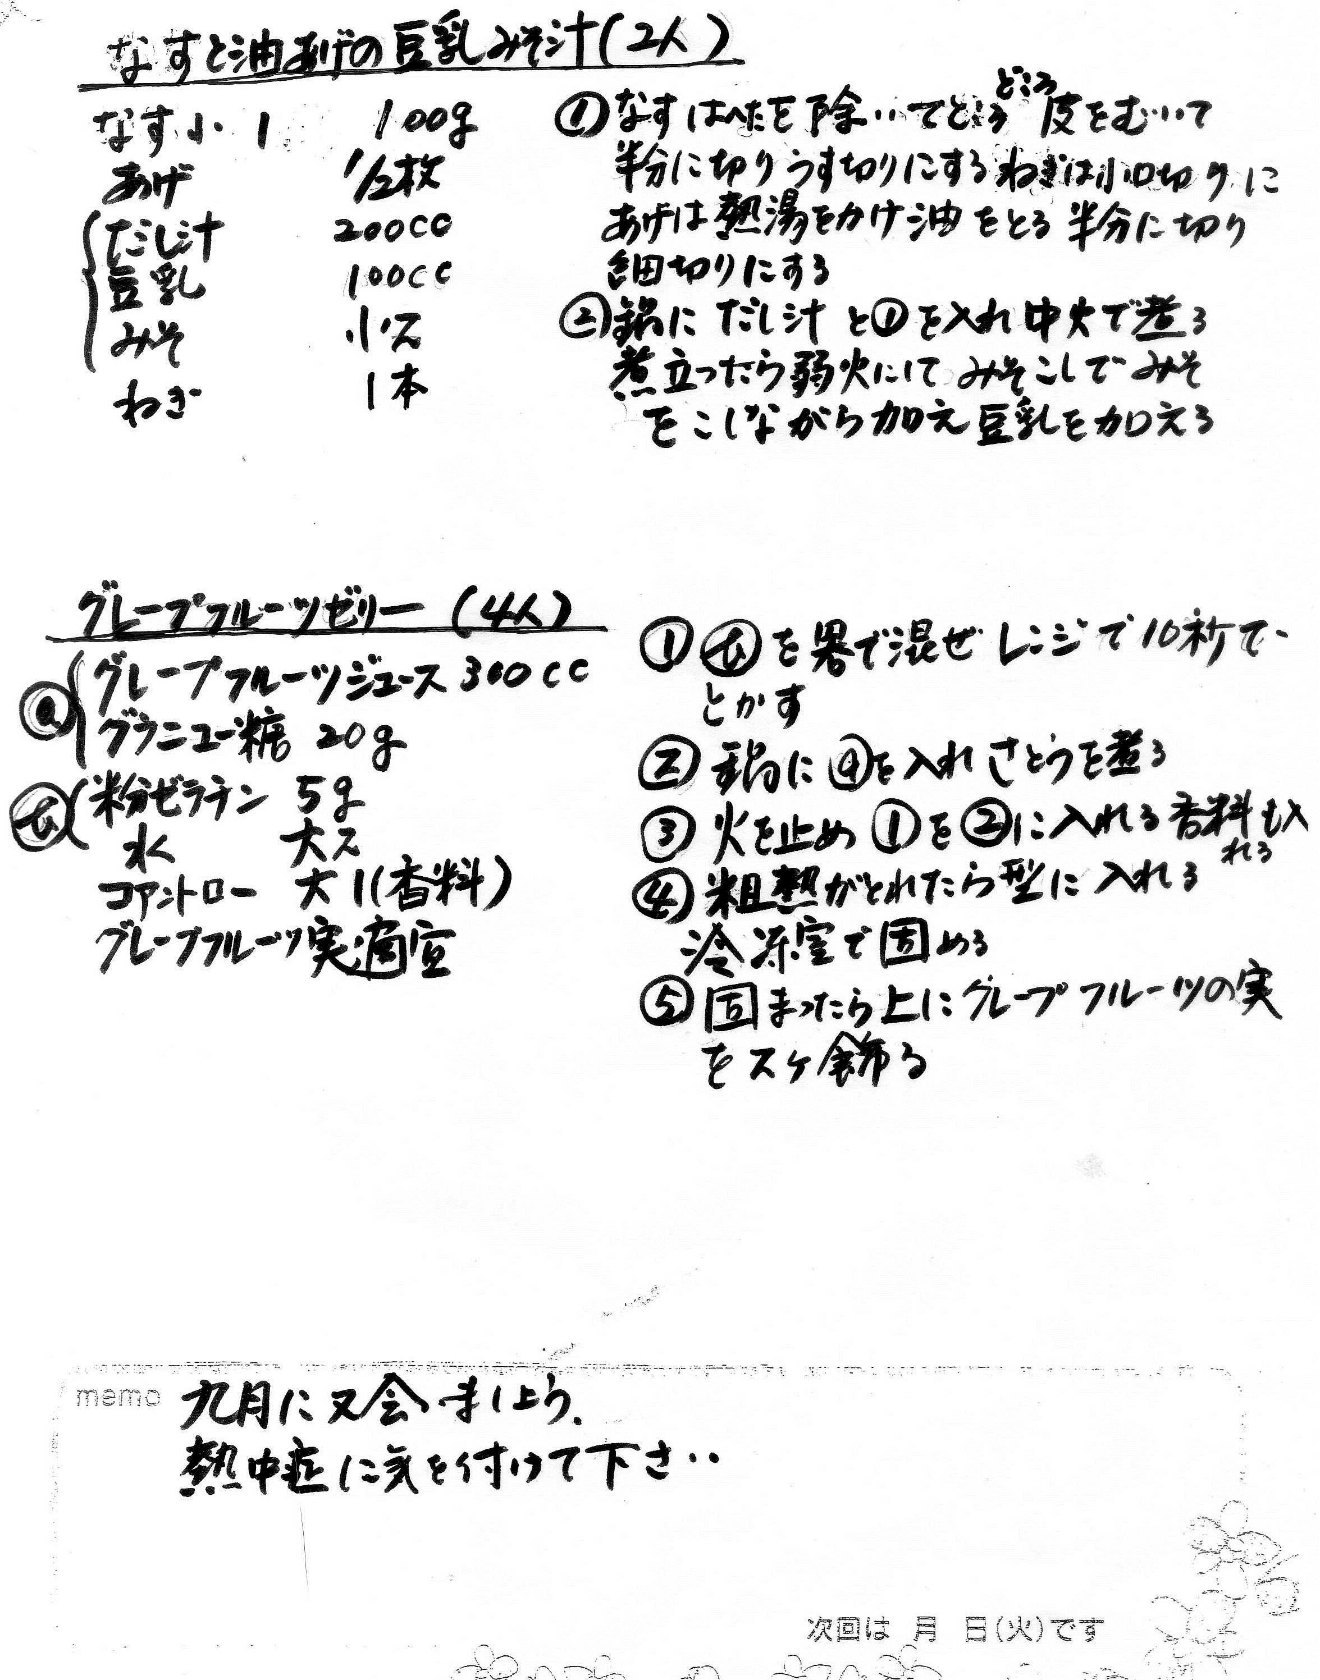 なすと油あげの豆乳みそ汁(2人)
なす小1 100g
あげ 1/2枚
だし汁 200cc
豆乳 100cc
みそ 小2
ねぎ 1本
①なすはへたを除いてところどころ皮をむいて
半分に切りうす切りにするねぎは小口切りに
あげは熱湯をかけ油をとる半分に切り
細切りにする
②鍋にだし汁と①を入れ中火で煮る
煮立ったら弱火にしてみそこしでみそ
をこしながら加え豆乳を加える
グレープフルーツゼリー(4人)
ⓐ グレープフルーツジュース 300cc
グラニュー糖 20g
ⓑ 粉ゼラチン 5g
水 大2
コアントロー 大1(香料)
グレープフルーツ実適宜
①ⓑを器で混ぜレンジで10秒で
とかす
②鍋にⓐを入れさとうを煮る
③火を止め①を②に入れる香料も入
れる
④粗熱がとれたら型に入れる
冷凍室で固める
⑤固まったら上にグレープフルーツの実
をスケ飾る
memo 九月に又会いましょう.
熱中症に気を付けて下さい
次回は 月 日(火)です